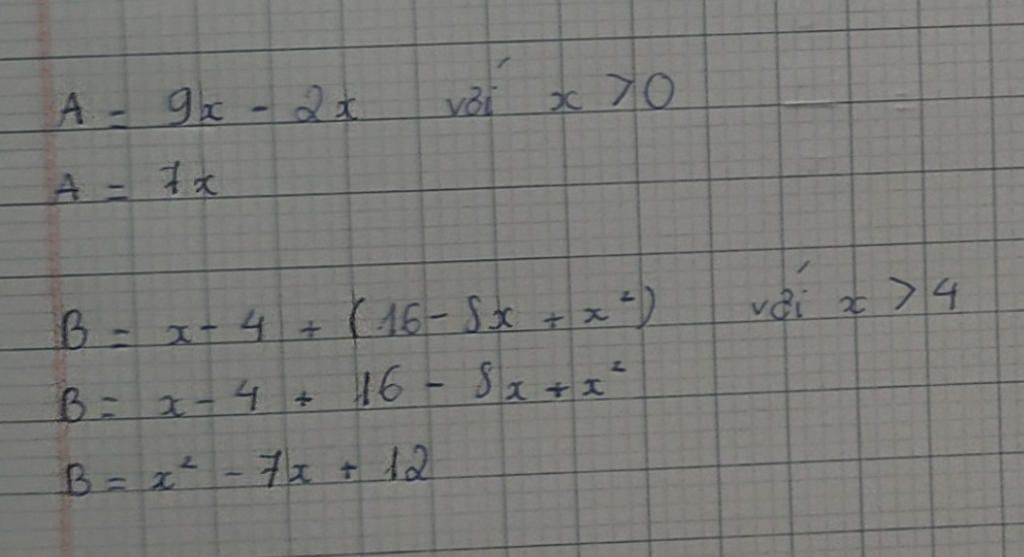 A = 9x - 2x với x > 0
A = 7x
B = x - 4 + (16 - 8x + x²) với x > 4
B = x - 4 + 16 - 8x + x²
B = x² - 7x + 12